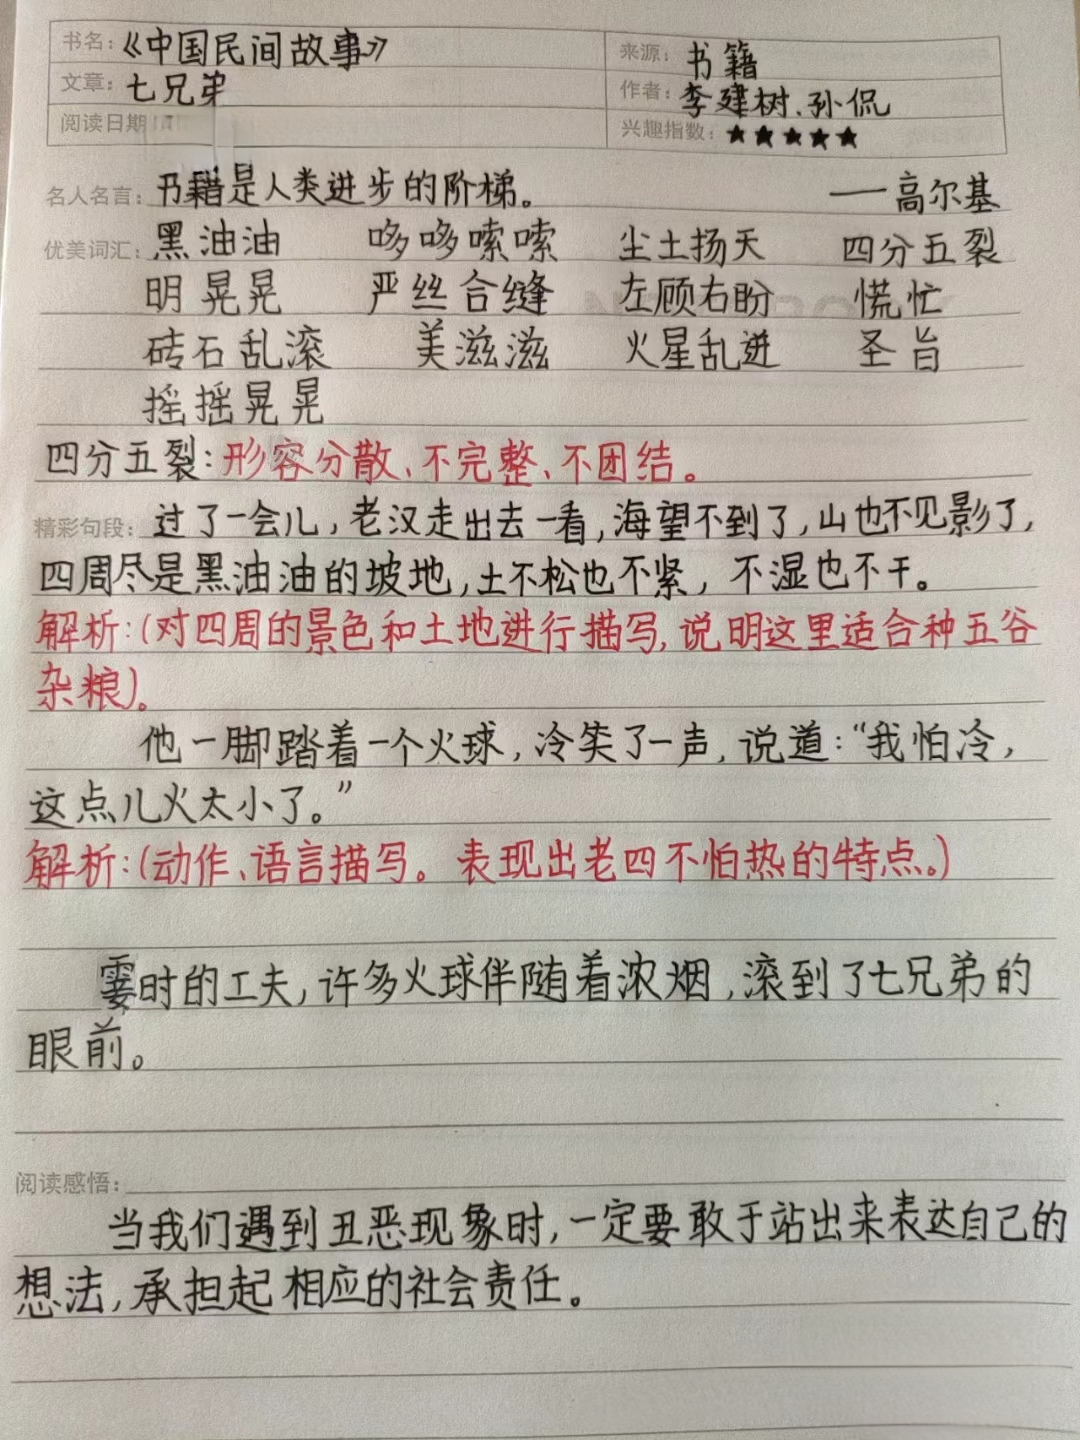 书名：《中国民间故事》 来源：书籍
文章：七兄弟 作者：李建树、孙侃
阅读日期 兴趣指数：★★★★★
名人名言：书籍是人类进步的阶梯。 ——高尔基
优美词汇：黑油油 哆哆嗦嗦 尘土扬天 四分五裂
明晃晃 严丝合缝 左顾右盼 慌忙
砖石乱滚 美滋滋 火星乱迸 圣旨
摇摇晃晃
四分五裂：形容分散、不完整、不团结。
精彩句段：过了一会儿，老汉走出去一看，海望不到了，山也不见影了，
四周尽是黑油油的坡地，土不松也不紧，不湿也不干。
解析：（对四周的景色和土地进行描写，说明这里适合种五谷
杂粮）。
他一脚踏着一个火球，冷笑了一声，说道：“我怕冷，
这点儿火太小了。”
解析：（动作、语言描写。表现出老四不怕热的特点。）
霎时的工夫，许多火球伴随着浓烟，滚到了七兄弟的
眼前。
阅读感悟：
当我们遇到丑恶现象时，一定要敢于站出来表达自己的
想法，承担起相应的社会责任。